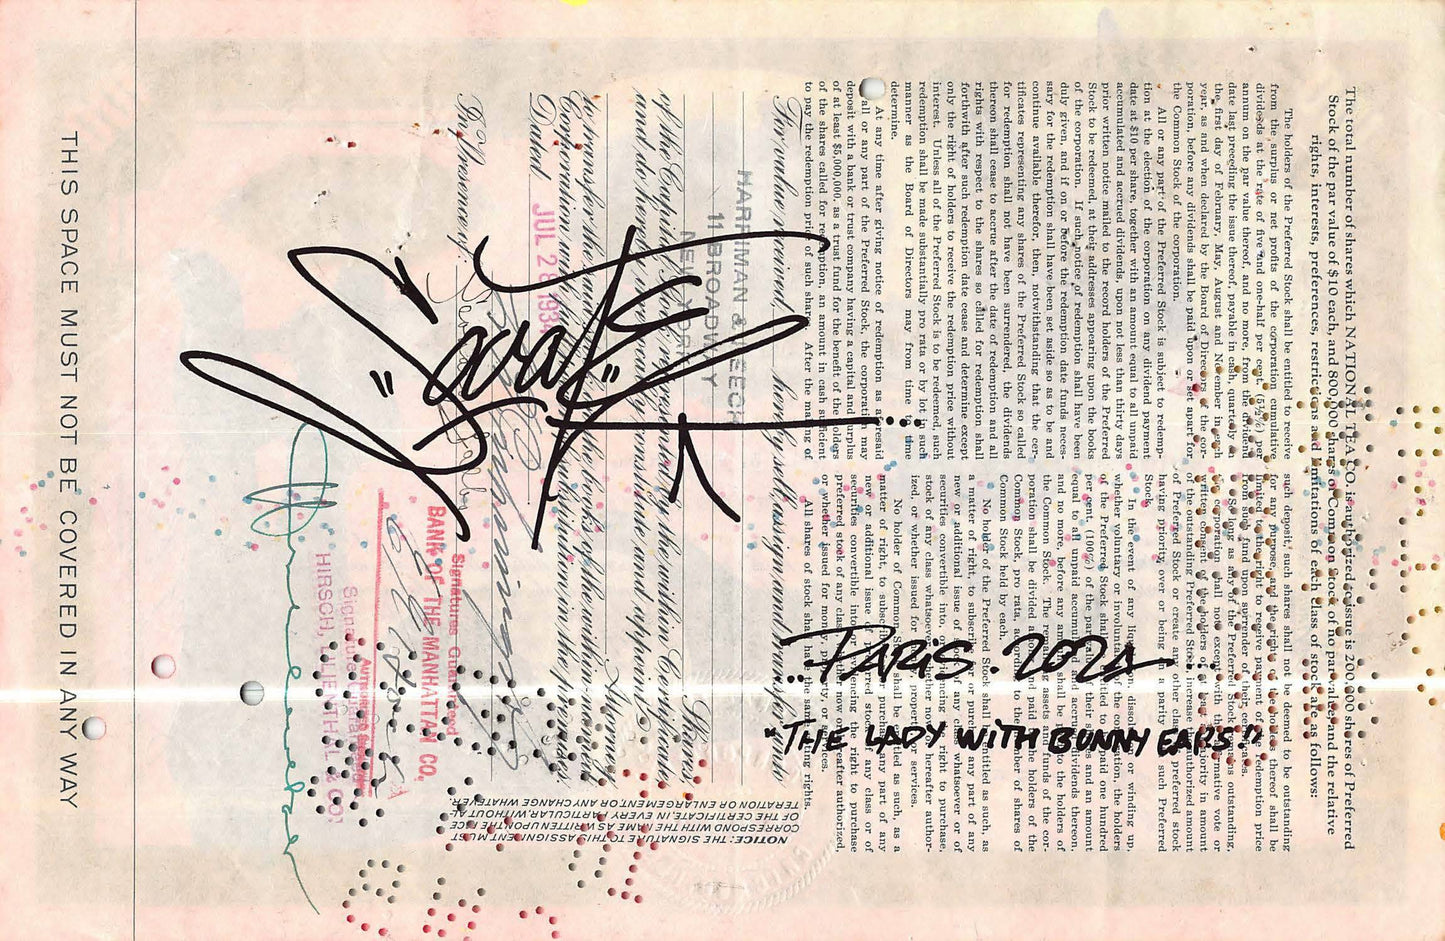 The total number of shares which NATIONAL TEA CO. is authorized to issue is 200,000 shares of Preferred
Stock of the par value of $10 each, and 800,000 shares of Common Stock of no par value, and the relative
rights, interests, preferences, restrictions and limitations of each class of stock are as follows:
The holders of the Preferred Stock shall be entitled to receive
from the surplus or net profits of the corporation cumulative
dividends at the rate of five and one-half per cent. (5½%) per
annum on the par value thereof, and no more, from the dividend
date last preceding the issue thereof, payable in cash, quarterly on
the first day of February, May, August and November in each
year, as and when declared by the Board of Directors of the cor-
poration, before any dividends shall be paid upon or set apart for
the Common Stock of the corporation.
All or any part of the Preferred Stock is subject to redemp-
tion at the election of the corporation on any dividend payment
date at $10 per share, together with an amount equal to all unpaid
accumulated and accrued dividends, upon not less than thirty days
prior written notice mailed to the record holders of the Preferred
Stock to be redeemed, at their addresses appearing upon the books
of the corporation. If such notice of redemption shall have been
duly given, and if on or before the redemption date funds neces-
sary for the redemption shall have been set aside so as to be and
continue available therefor, then, notwithstanding that the cer-
tificates representing any shares of the Preferred Stock so called
for redemption shall not have been surrendered, the dividends
thereon shall cease to accrue after the date of redemption and all
rights with respect to the shares so called for redemption shall
forthwith after such redemption date cease and determine except
only the right of holders to receive the redemption price without
interest. Unless all of the Preferred Stock is to be redeemed, such
redemption shall be made substantially pro rata or by lot in such
manner as the Board of Directors may from time to time
determine.
At any time after giving notice of redemption as aforesaid
of all or any part of the Preferred Stock, the corporation may
deposit with a bank or trust company having a capital and surplus
of at least $5,000,000, as a trust fund for the benefit of the holders
of the shares called for redemption, an amount in cash sufficient
to pay the redemption price of such shares. After the making of
such deposit, such shares shall not be deemed to be outstanding
for any purpose, and the rights of the holders thereof shall be
limited to the right to receive payment of the redemption price
from such fund upon surrender of their certificates.
So long as any of the Preferred Stock remains outstanding,
the corporation shall not, except with the affirmative vote or
written consent of the holders of at least a majority in amount
of the outstanding Preferred Stock, increase the authorized amount
of Preferred Stock or create any other class of preferred stock
having priority over or being on a parity with such Preferred
Stock.
In the event of any liquidation, dissolution or winding up,
whether voluntary or involuntary, of the corporation, the holders
of the Preferred Stock shall be entitled to be paid one hundred
per cent. (100%) of the par value of their shares and an amount
equal to all unpaid accumulated and accrued dividends thereon,
and no more, before any amount shall be paid to the holders of
the Common Stock. The remaining assets and funds of the cor-
poration shall be divided among and paid to the holders of the
Common Stock, pro rata, according to the number of shares of
Common Stock held by each.
No holder of the Preferred Stock shall be entitled as such, as
a matter of right, to subscribe for or purchase any part of any
new or additional issue of stock of any class whatsoever or of
securities convertible into, or evidencing the right to purchase,
stock of any class whatsoever, whether now or hereafter author-
ized, or whether issued for money, property or services.
No holder of Common Stock shall be entitled as such, as a
matter of right, to subscribe for or purchase any part of any
new or additional issue of preferred stock of any class or of
securities convertible into or evidencing the right to purchase
preferred stock of any class, whether now or hereafter authorized,
or whether issued for money, property, or services.
All shares of stock shall have the same voting rights.
For value received, hereby sell, assign and transfer unto
HARRIMAN & KEECH
11 BROADWAY
NEW YORK
Shares
of the Capital Stock represented by the within Certificate,
and do hereby irrevocably constitute and appoint
Attorney
to transfer the said stock on the books of the within named
Corporation with full power of substitution in the premises.
Dated JUL 28 1934
In Presence of
NOTICE: THE SIGNATURE TO THIS ASSIGNMENT MUST
CORRESPOND WITH THE NAME AS WRITTEN UPON THE FACE
OF THE CERTIFICATE, IN EVERY PARTICULAR, WITHOUT AL-
TERATION OR ENLARGEMENT, OR ANY CHANGE WHATEVER.
Signatures Guaranteed
BANK OF THE MANHATTAN CO.
Signature Guaranteed
HIRSCH, LILIENTHAL & CO.
THIS SPACE MUST NOT BE COVERED IN ANY WAY
PARIS. 2024
"THE LADY WITH BUNNY EARS"